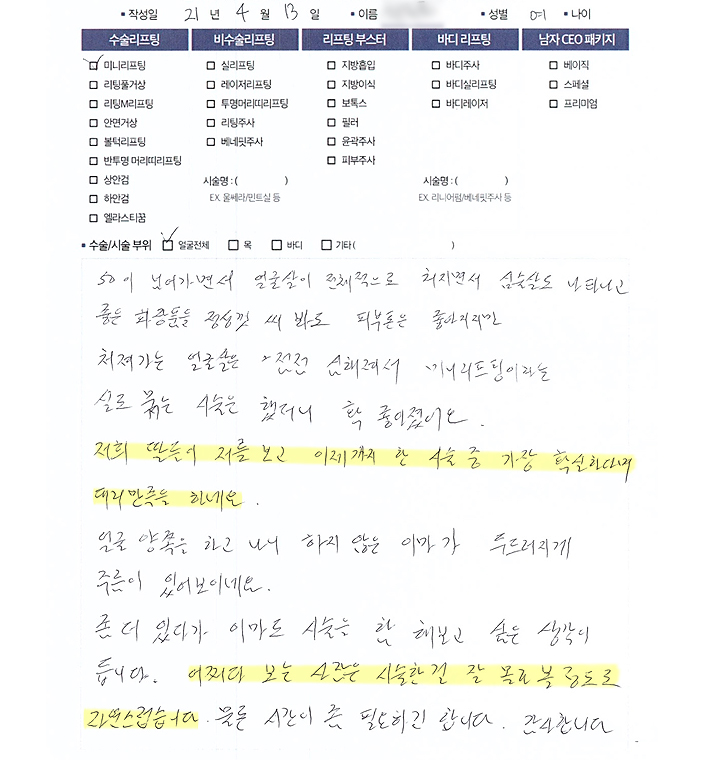 ▪ 작성일 21 년 4 월 13 일 ▪ 이름 ▪ 성별 여 ▪ 나이
수술리프팅 비수술리프팅 리프팅 부스터 바디 리프팅 남자 CEO 패키지
미니리프팅 실리프팅 지방흡입 바디주사 베이직
리팅풀거상 레이저리프팅 지방이식 바디실리프팅 스페셜
리팅M리프팅 투명머리띠리프팅 보톡스 바디레이저 프리미엄
안면거상 리팅주사 필러
볼턱리프팅 베네핏주사 윤곽주사
반투명 머리띠리프팅 피부주사
상안검 시술명 : ( ) 시술명 : ( )
하안검 EX. 울쎄라/민트실 등 EX. 리니어펌/베네핏주사 등
엘라스티꿈
▪ 수술/시술 부위 얼굴전체 목 바디 기타 ( )
50이 넘어가면서 얼굴살이 전체적으로 처지면서 심술살도 나타나고
좋은 화장품들 정성껏 써 봐도 피부톤은 좋아지지만
처져가는 얼굴살은 점점 심해져서 미니리프팅이라는
실로 묶는 시술은 했더니 확 좋아졌어요.
저희 딸들이 저를 보고 이제까지 한 시술 중 가장 확실하다며
대리만족을 하네요.
얼굴 양쪽을 하고 나니 하지 않은 이마가 두드러지게
주름이 있어보이네요.
좀 더 있다가 이마도 시술을 함 해보고 싶은 생각이
듭니다. 어쩌다 보는 사람은 시술한걸 잘 몰라 볼 정도로
자연스럽습니다. 물론 시간이 좀 필요하긴 합니다. 감사합니다